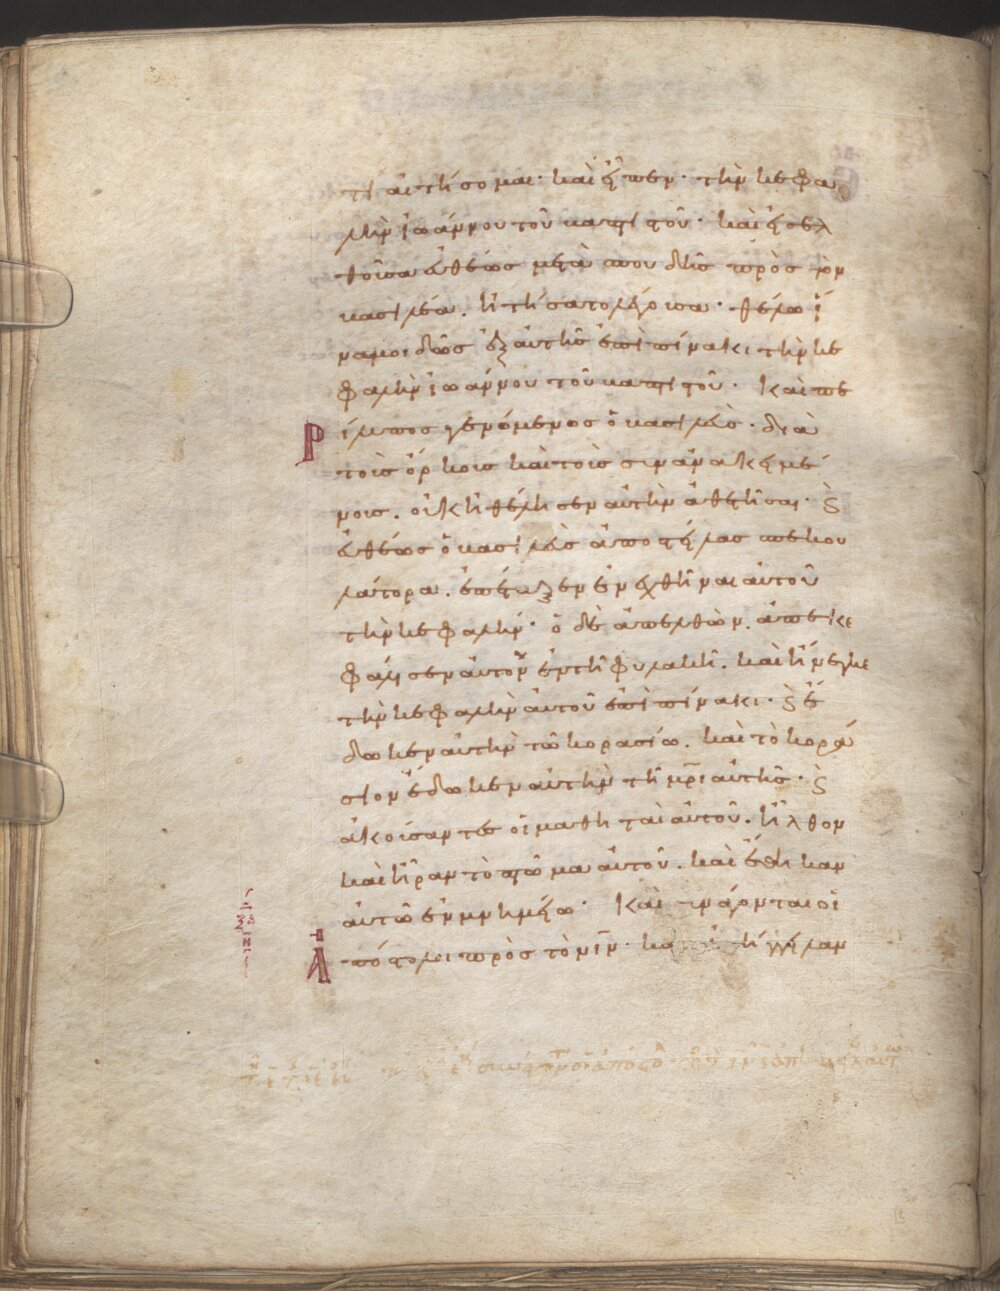 τί αἰτήσομαι· καὶ εἶπεν· τὴν κεφα
λὴν ἰωάννου τοῦ βαπτιστοῦ· καὶ εἰσελ
θοῦσα εὐθέως μετὰ σπουδῆς πρὸς τὸν
βασιλέα. ἠτήσατο λέγουσα· θέλω ἵ
να μοι δῶς ἐξαυτῆς ἐπὶ πίνακι τὴν κε
φαλὴν ἰωάννου τοῦ βαπτιστοῦ· Καὶ πε
ρίλυπος γενόμενος ὁ βασιλεὺς· διὰ
τοὺς ὅρκους καὶ τοὺς συνανακειμέ
νους. οὐκ ἠθέλησεν αὐτὴν ἀθετῆσαι· ϗ
εὐθέως ὁ βασιλεὺς ἀποστείλας σπεκου
λάτορα. ἐπέταξεν ἐνεχθῆναι αὐτοῦ
τὴν κεφαλήν· ὁ δὲ ἀπελθὼν. ἀπεκε
φάλισεν αὐτὸν ἐν τῆ φυλακῆ. καὶ ἤνεγκε
τὴν κεφαλὴν αὐτοῦ ἐπὶ πίνακι· ϗ ἔ
δωκεν αὐτὴν τῶ κορασίω. καὶ τὸ κορά
σιον ἔδωκεν αὐτὴν τῆ μρι αὐτῆς· ϗ
ἀκούσαντες οἱ μαθηταὶ αὐτοῦ. ἦλθον
καὶ ἦραν τὸ πτῶμα αὐτοῦ. καὶ ἔθηκαν
αὐτῶ ἐν μνημείω· Καὶ συνάγονται οἱ
ἀπόστολοι πρὸς τὸν ιν· κα ἀπήγγειλαν